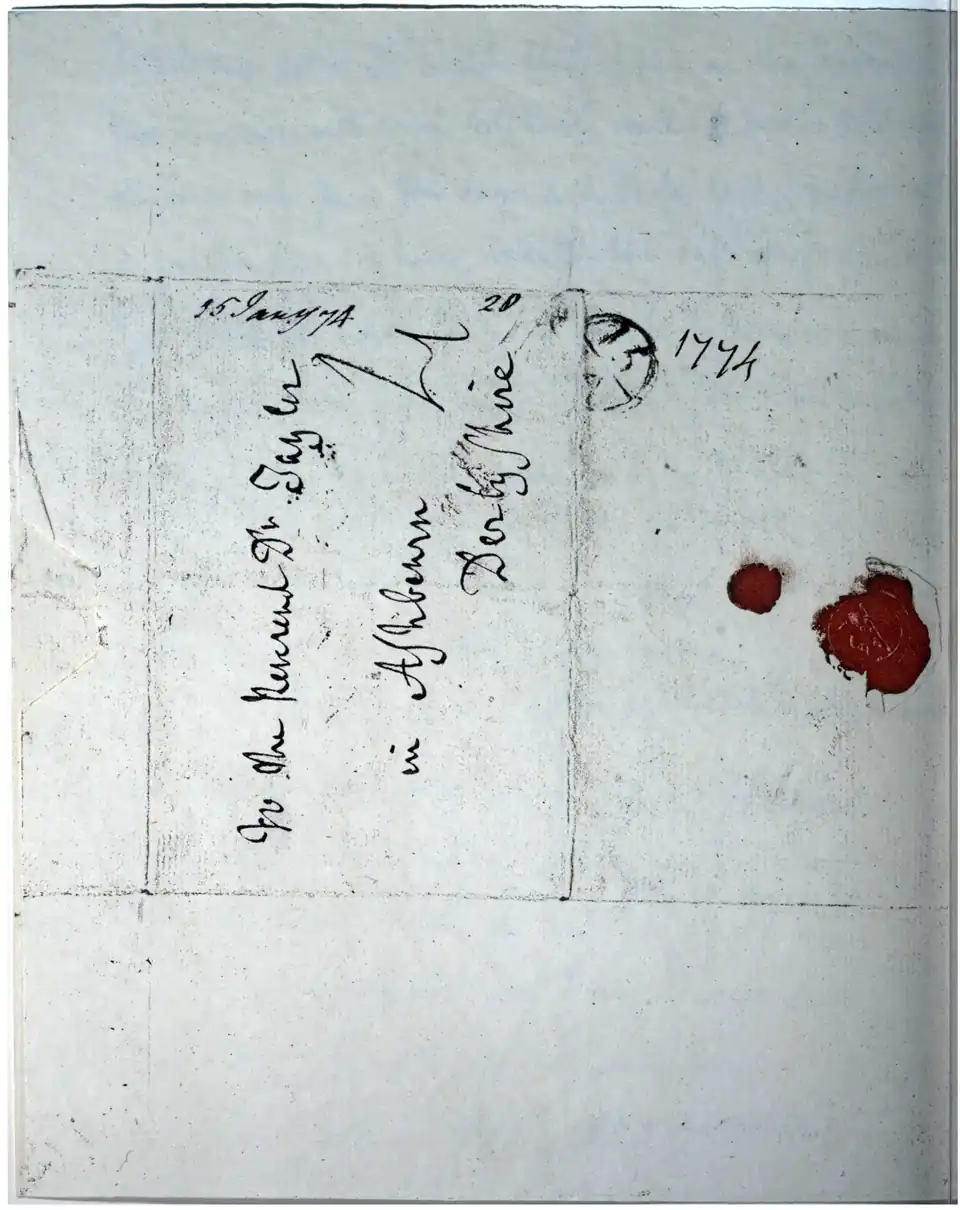 15 Jany 74.
28
To the Reverend Dr Taylor
in Ashbourn
Derbyshire
1774